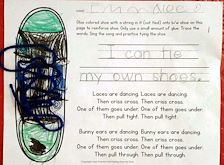 Glue colored shoe with a string in it (not tied) onto b/w shoe on this
page to reinforce shoe. Only use a small amount of glue. Trace the
words. Sing the song and practice tying the shoe.
I can tie
my own shoes.
Laces are dancing. Laces are dancing.
Then criss cross. Then criss cross.
One of them goes under. One of them goes under.
Then pull tight. Then pull tight.
Bunny ears are dancing. Bunny ears are dancing.
Then criss cross. Then criss cross.
One of them goes under. One of them goes under.
Then pull through. Then pull through.